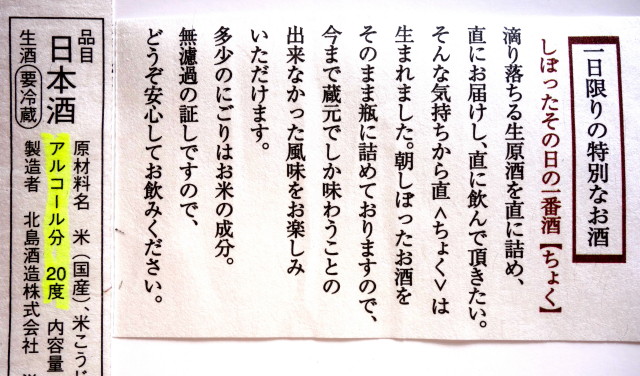 一日限りの特別なお酒
しぼったその日の一番酒【ちょく】
滴り落ちる生原酒を直に詰め、
直にお届けし、直に飲んで頂きたい。
そんな気持ちから直<ちょく>は
生まれました。朝しぼったお酒を
そのまま瓶に詰めておりますので、
今まで蔵元でしか味わうことの
出来なかった風味をお楽しみ
いただけます。
多少のにごりはお米の成分。
無濾過の証しですので、
どうぞ安心してお飲みください。
品目
日本酒
生酒 要冷蔵
原材料名 米(国産)、米こうじ
アルコール分 20度 内容量
製造者 北島酒造株式会社